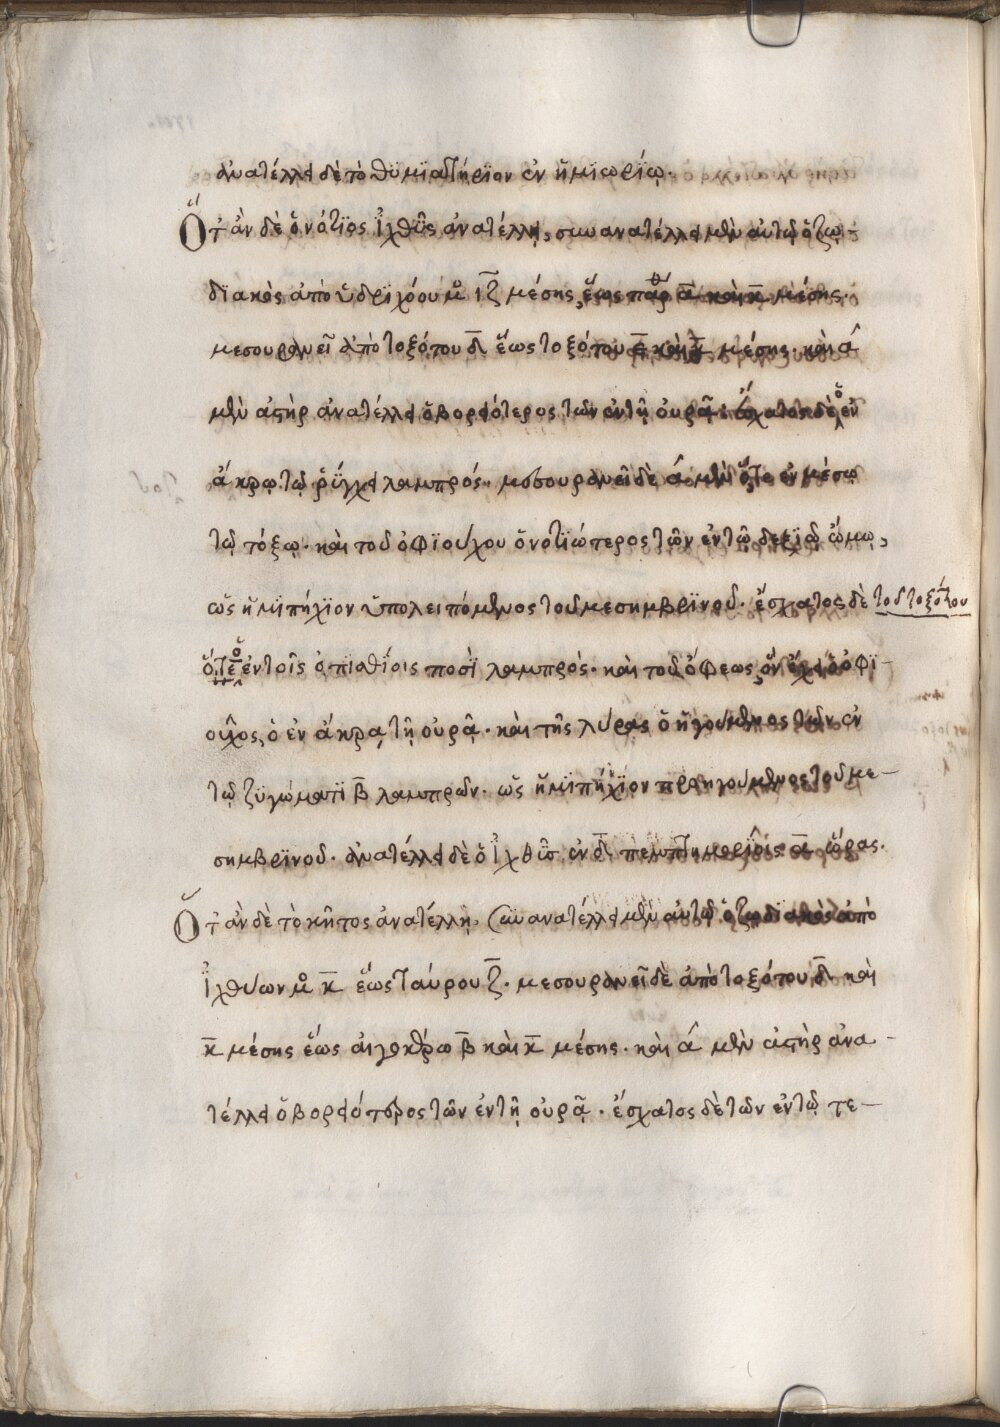 ἀνατέλλει δὲ τὸ θϋμϊατήρϊον ἐν ἡμϊωρίῳ.
Ὅτ ἂν δὲ ὁ νότϊος Ἰχθῦς ἀνατέλλῃ, συωανατέλλει μὲν αὐτῷ ὁ ζῳ-
δϊακὸς ἀπὸ ὑδριχόου μο ῑζ̄ μέσης, ἕως παρθ ᾱ καὶ κ̄ μέσης.
μεσουρανεῖ ἀπὸ τοξότου δ̄ ἕως τοξότου ε̄ καὶ μέσης. καὶ α
μὲν ἀστὴρ ἀνατέλλει ὁ βορειότερος τῶν ἐν τῇ οὐρᾷ. ἔσχατος δὲ ὁ ἐν
ἄκρῳ τῷ ῥύγχει λαμπρός. μεσουρανεῖ δὲ α μὲν ὅτε ἐν μέσῳ
τῷ τόξῳ. καὶ τοῦ ὀφϊούχου ὁ νοτϊώτερος τῶν ἐν τῷ δεξϊῷ ὤμῳ,
ὡς ἡμϊπήχϊον ὑπολειπόμενος τοῦ μεσημβρϊνοῦ. ἔσχατος δὲ τοῦ τοξότου
ὅ,τε ὁ ἐν τοῖς ὀπϊσθίοις ποσὶ λαμπρὸς. καὶ τοῦ ὄφεως, ὃν ἔχει ὁ ὀφϊ-
οῦχος, ὁ ἐν ἄκρᾳ τῇ οὐρᾷ. καὶ τῆς λύρας ὁ ἡγούμενος τῶν ἐν
τῷ ζϋγώματϊ β̄ λαμπρῶν. ὡς ἡμϊπήχϊον προηγούμενος τοῦ με-
σημβρϊνοῦ. ἀνατέλλει δὲ ὁ Ἰχθῦς ἐν δ̄ πεμπτημορίοις ᾱ ὥρας.
Ὅτ ἂν δὲ τὸ κῆτος ἀνατέλλῃ, συνανατέλλει μὲν αὐτῷ ὁ ζῳδιακὸς ἀπὸ
Ἰχθύων μο κ̄ ἕως Ταύρου ζ̄. μεσουρανεῖ δὲ ἀπὸ τοξότου δ̄ καὶ
κ̄ μέσης ἕως αἰγοκέρω β̄ καὶ κ̄ μέσης. καὶ α μὲν ἀστὴρ ἀνα-
τέλλει ὁ βορειότερος τῶν ἐν τῇ οὐρᾷ. ἔσχατος δὲ τῶν ἐν τῷ τε-